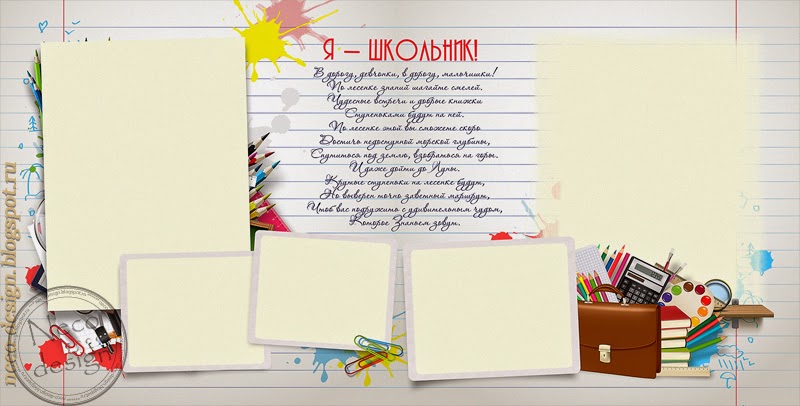 Я — ШКОЛЬНИК!
В дорогу, девчонки, в дорогу, мальчишки!
По лесенке знаний шагайте смелей.
Чудесные встречи и добрые книжки
Ступеньками будут на ней.
По лесенке этой вы сможете скоро
Достичь недоступной морской глубины,
Спуститься под землю, взобраться на горы.
И даже дойти до Луны.
Крутые ступеньки на лесенке будут,
Но выверен точно заветный маршрут,
Чтоб вас подружить с удивительным чудом,
Которое Знаньем зовут.
necoi-design.blogspot.ru
Necoi
design